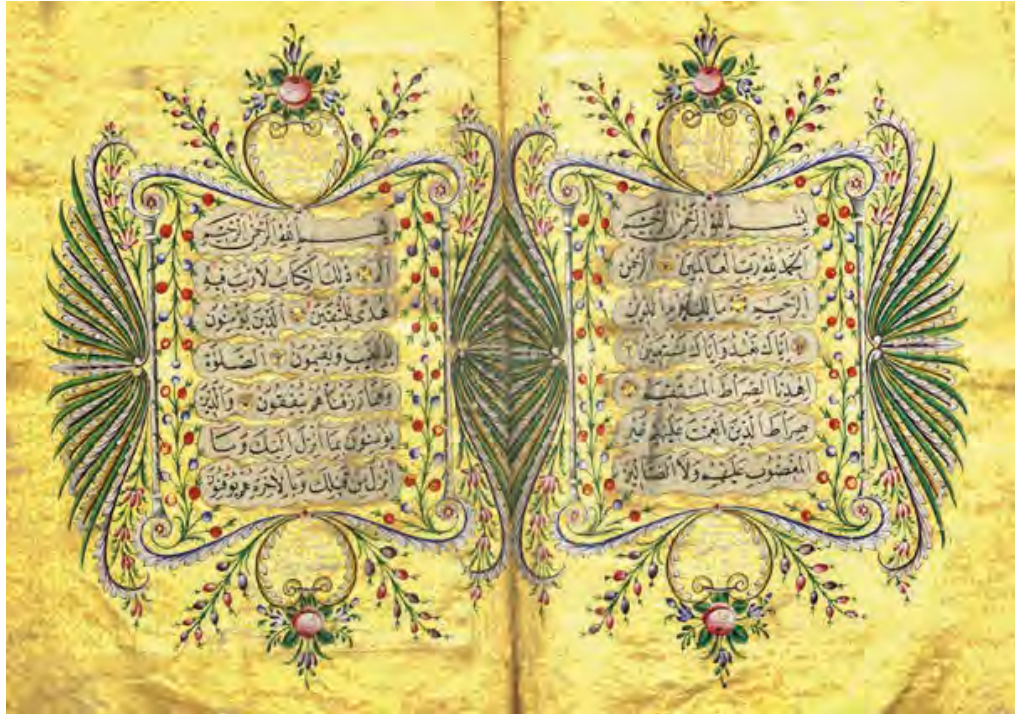 بِسْمِ اللهِ الرَّحْمٰنِ الرَّحِيمِ
اَلْحَمْدُ لِلّٰهِ رَبِّ الْعَالَمِينَ اَلرَّحْمٰنِ
الرَّحِيمِ مَالِكِ يَوْمِ الدِّينِ
اِيَّاكَ نَعْبُدُ وَاِيَّاكَ نَسْتَعِينُ
اِهْدِنَا الصِّرَاطَ الْمُسْتَقِيمَ
صِرَاطَ الَّذِينَ اَنْعَمْتَ عَلَيْهِمْ غَيْرِ
الْمَغْضُوبِ عَلَيْهِمْ وَلَا الضَّالِّينَ
بِسْمِ اللهِ الرَّحْمٰنِ الرَّحِيمِ
الم ذٰلِكَ الْكِتَابُ لَا رَيْبَ فِيهِ
هُدًى لِلْمُتَّقِينَ اَلَّذِينَ يُؤْمِنُونَ
بِالْغَيْبِ وَيُقِيمُونَ الصَّلٰوةَ
وَمِمَّا رَزَقْنَاهُمْ يُنْفِقُونَ وَالَّذِينَ
يُؤْمِنُونَ بِمَا اُنْزِلَ اِلَيْكَ وَمَا
اُنْزِلَ مِنْ قَبْلِكَ وَبِالْاٰخِرَةِ هُمْ يُوقِنُونَ